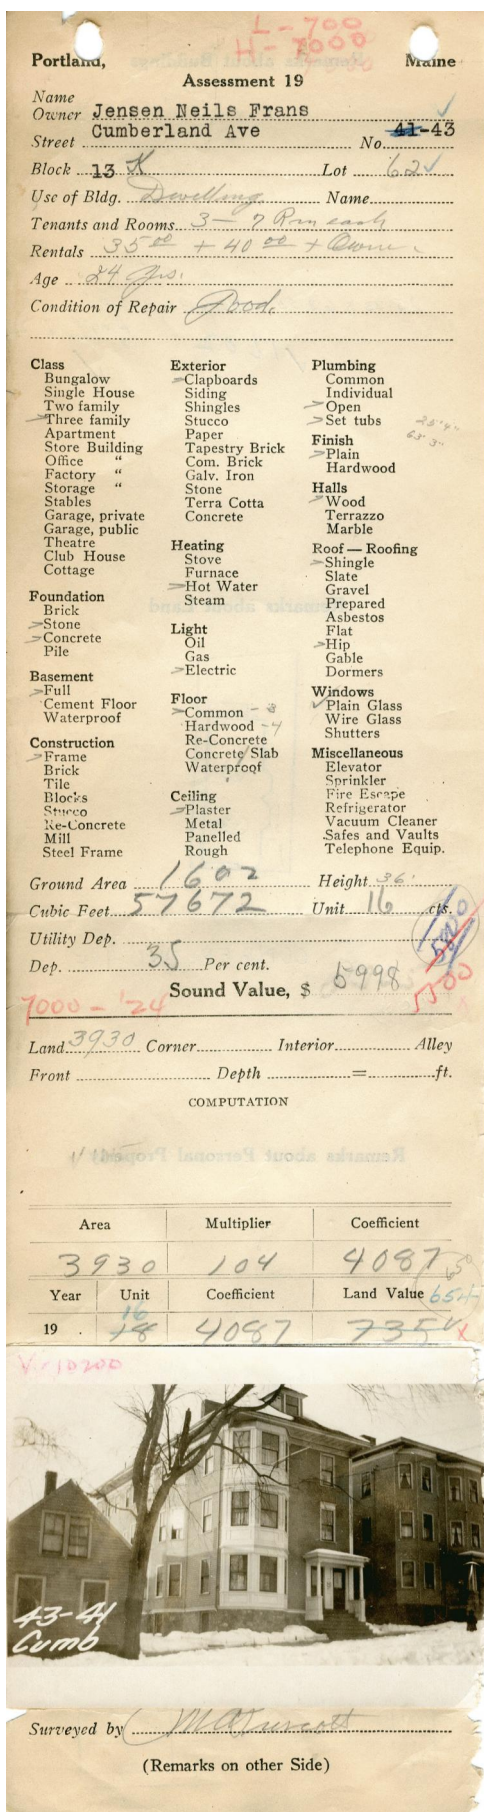 L-700
H-7000
Portland, Maine
Assessment 19
Name
Owner Jensen Neils Frans
Street Cumberland Ave No. 41-43
Block 13 K Lot 62
Use of Bldg. Dwelling Name
Tenants and Rooms 3 - 7 Rm each
Rentals 35 00 + 40 00 + Owner
Age 24 yrs.
Condition of Repair Good.
Class
Bungalow
Single House
Two family
Three family
Apartment
Store Building
Office "
Factory "
Storage "
Stables
Garage, private
Garage, public
Theatre
Club House
Cottage
Foundation
Brick
Stone
Concrete
Pile
Basement
Full
Cement Floor
Waterproof
Construction
Frame
Brick
Tile
Blocks
Stucco
Re-Concrete
Mill
Steel Frame
Exterior
Clapboards
Siding
Shingles
Stucco
Paper
Tapestry Brick
Com. Brick
Galv. Iron
Stone
Terra Cotta
Concrete
Heating
Stove
Furnace
Hot Water
Steam
Light
Oil
Gas
Electric
Floor
Common - 3
Hardwood - 4
Re-Concrete
Concrete Slab
Waterproof
Ceiling
Plaster
Metal
Panelled
Rough
Plumbing
Common
Individual
Open
Set tubs
Finish
Plain
Hardwood
Halls
Wood
Terrazzo
Marble
Roof — Roofing
Shingle
Slate
Gravel
Prepared
Asbestos
Flat
Hip
Gable
Dormers
Windows
Plain Glass
Wire Glass
Shutters
Miscellaneous
Elevator
Sprinkler
Fire Escape
Refrigerator
Vacuum Cleaner
Safes and Vaults
Telephone Equip.
Ground Area 1602 Height 36'
Cubic Feet 57672 Unit 16 cts.
Utility Dep.
Dep. 35 Per cent.
Sound Value, $ 5998
7000 - '24
Land 3930 Corner Interior Alley
Front Depth = ft.
COMPUTATION
Area Multiplier Coefficient
3930 104 4087
Year Unit Coefficient Land Value 654
16
19 18 4087 735
V-10200
43-41
Cumb
Surveyed by
(Remarks on other Side)